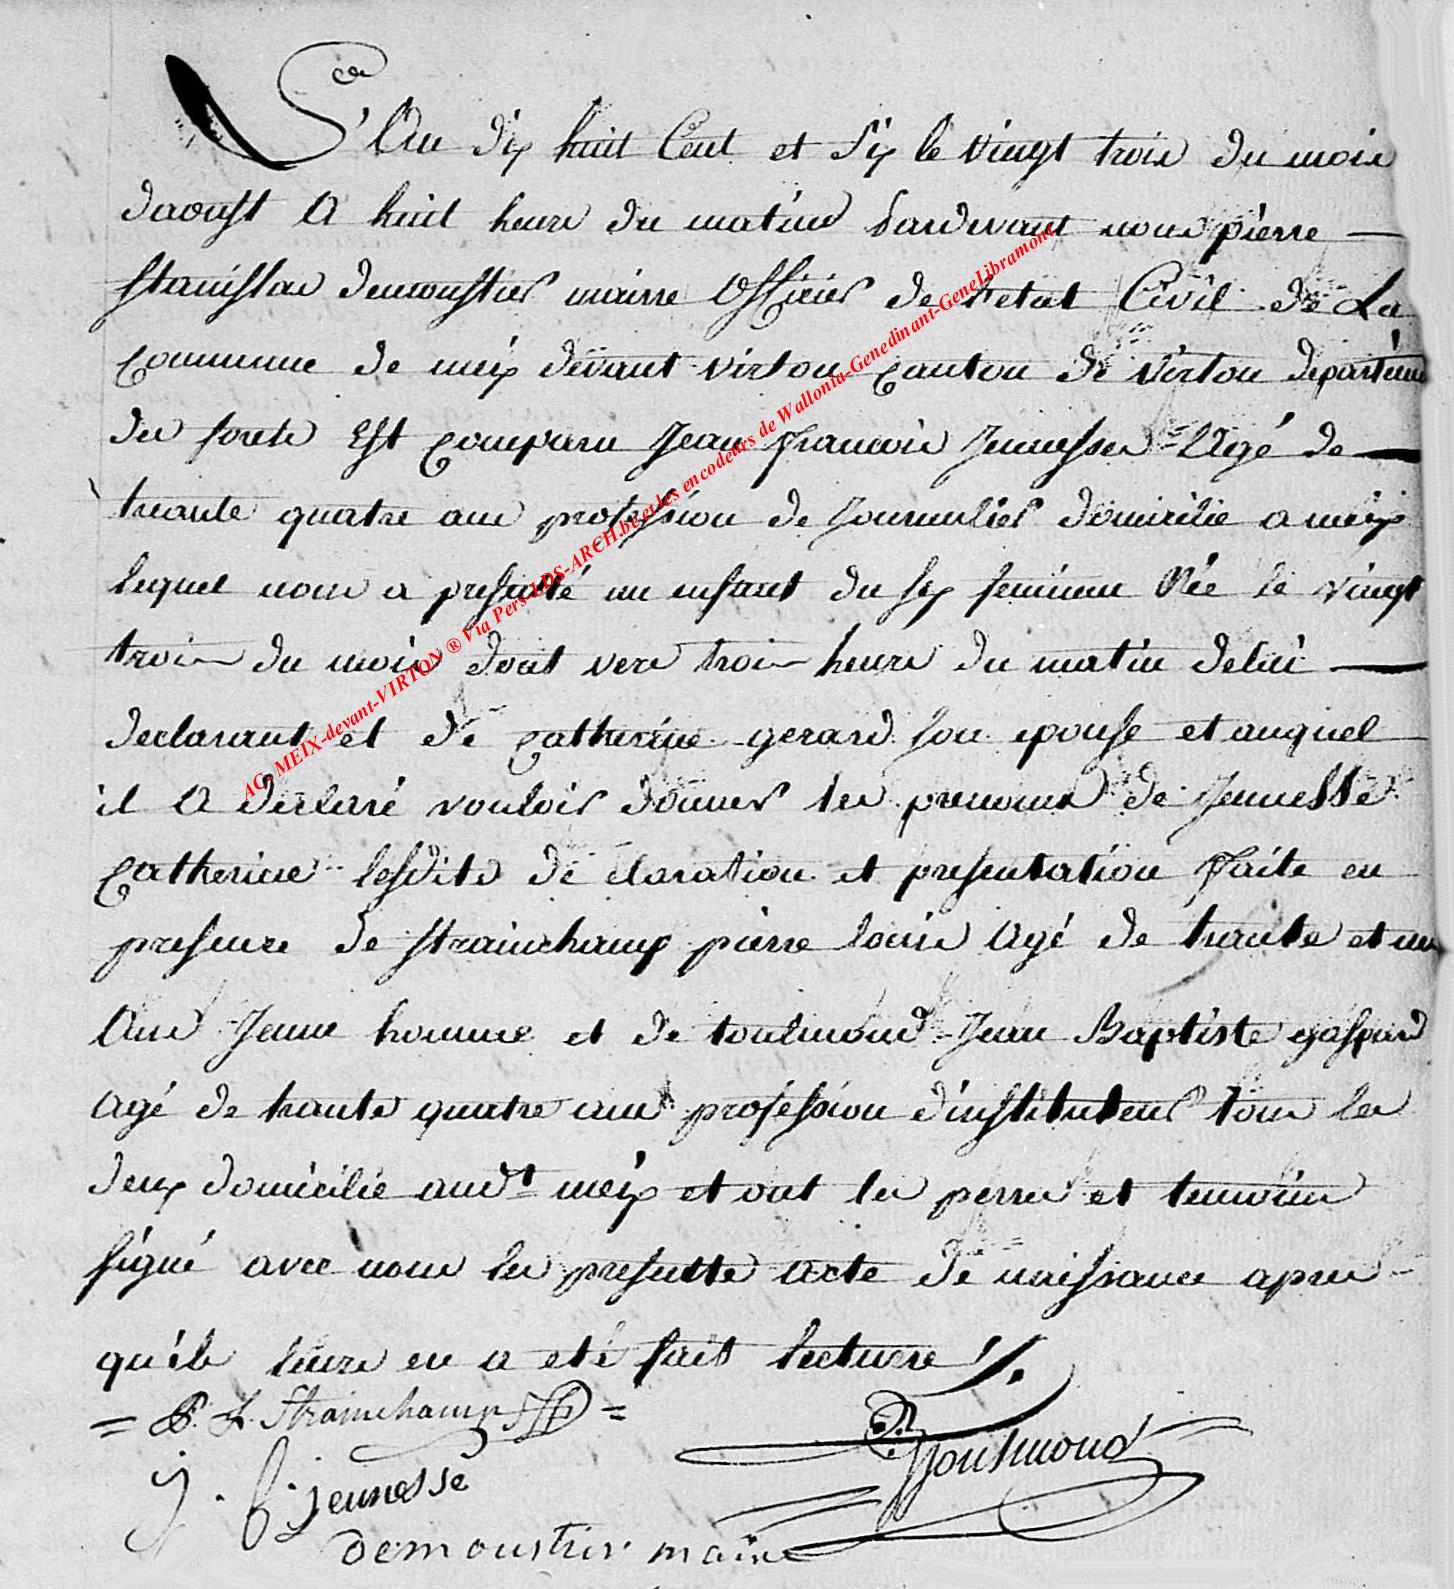 L'An dix huit Cent et Six le vingt trois du mois
daoust A huit heure du matins pardevant nous pierre
stanislas demoustier mairre Officier de l'etat Civil de La
Commune de meix devant virton Canton de virton departem
des forets Est Comparu Jean francois Jeunesse Agé de
trante quatre ans profession de Journalier domicilié a meix
lequel nous a presenté un enfant du sex feminin Née le vingt
trois du mois dout vers trois heure du matin delui
declarant et de Catherine gerard son epouse et auquel
il A declaré vouloir donner les prenoms de Jeunesse
Catherine lesdite declaration et presentation Faite en
presence de strainchamp pierre louis Agé de trante et un
Ans Jeune homme et de toulmond Jean Baptiste gaspard
Agé de trante quatre ans profession d'instituteur tous les
deux domicilié audt meix et ont les perre et temoins
signé avec nous les presentte Acte de naissance apres
qu'ils leure en a eté fait lecturre ./.
= P. L. Strainchamp =
Toulmond
J. f. jeunesse
demoustier maire
AC- MEIX-devant-VIRTON ® Via Pers-LDS-ARCH.be et les encodeurs de Wallonia-Genedinant-GeneLibramont